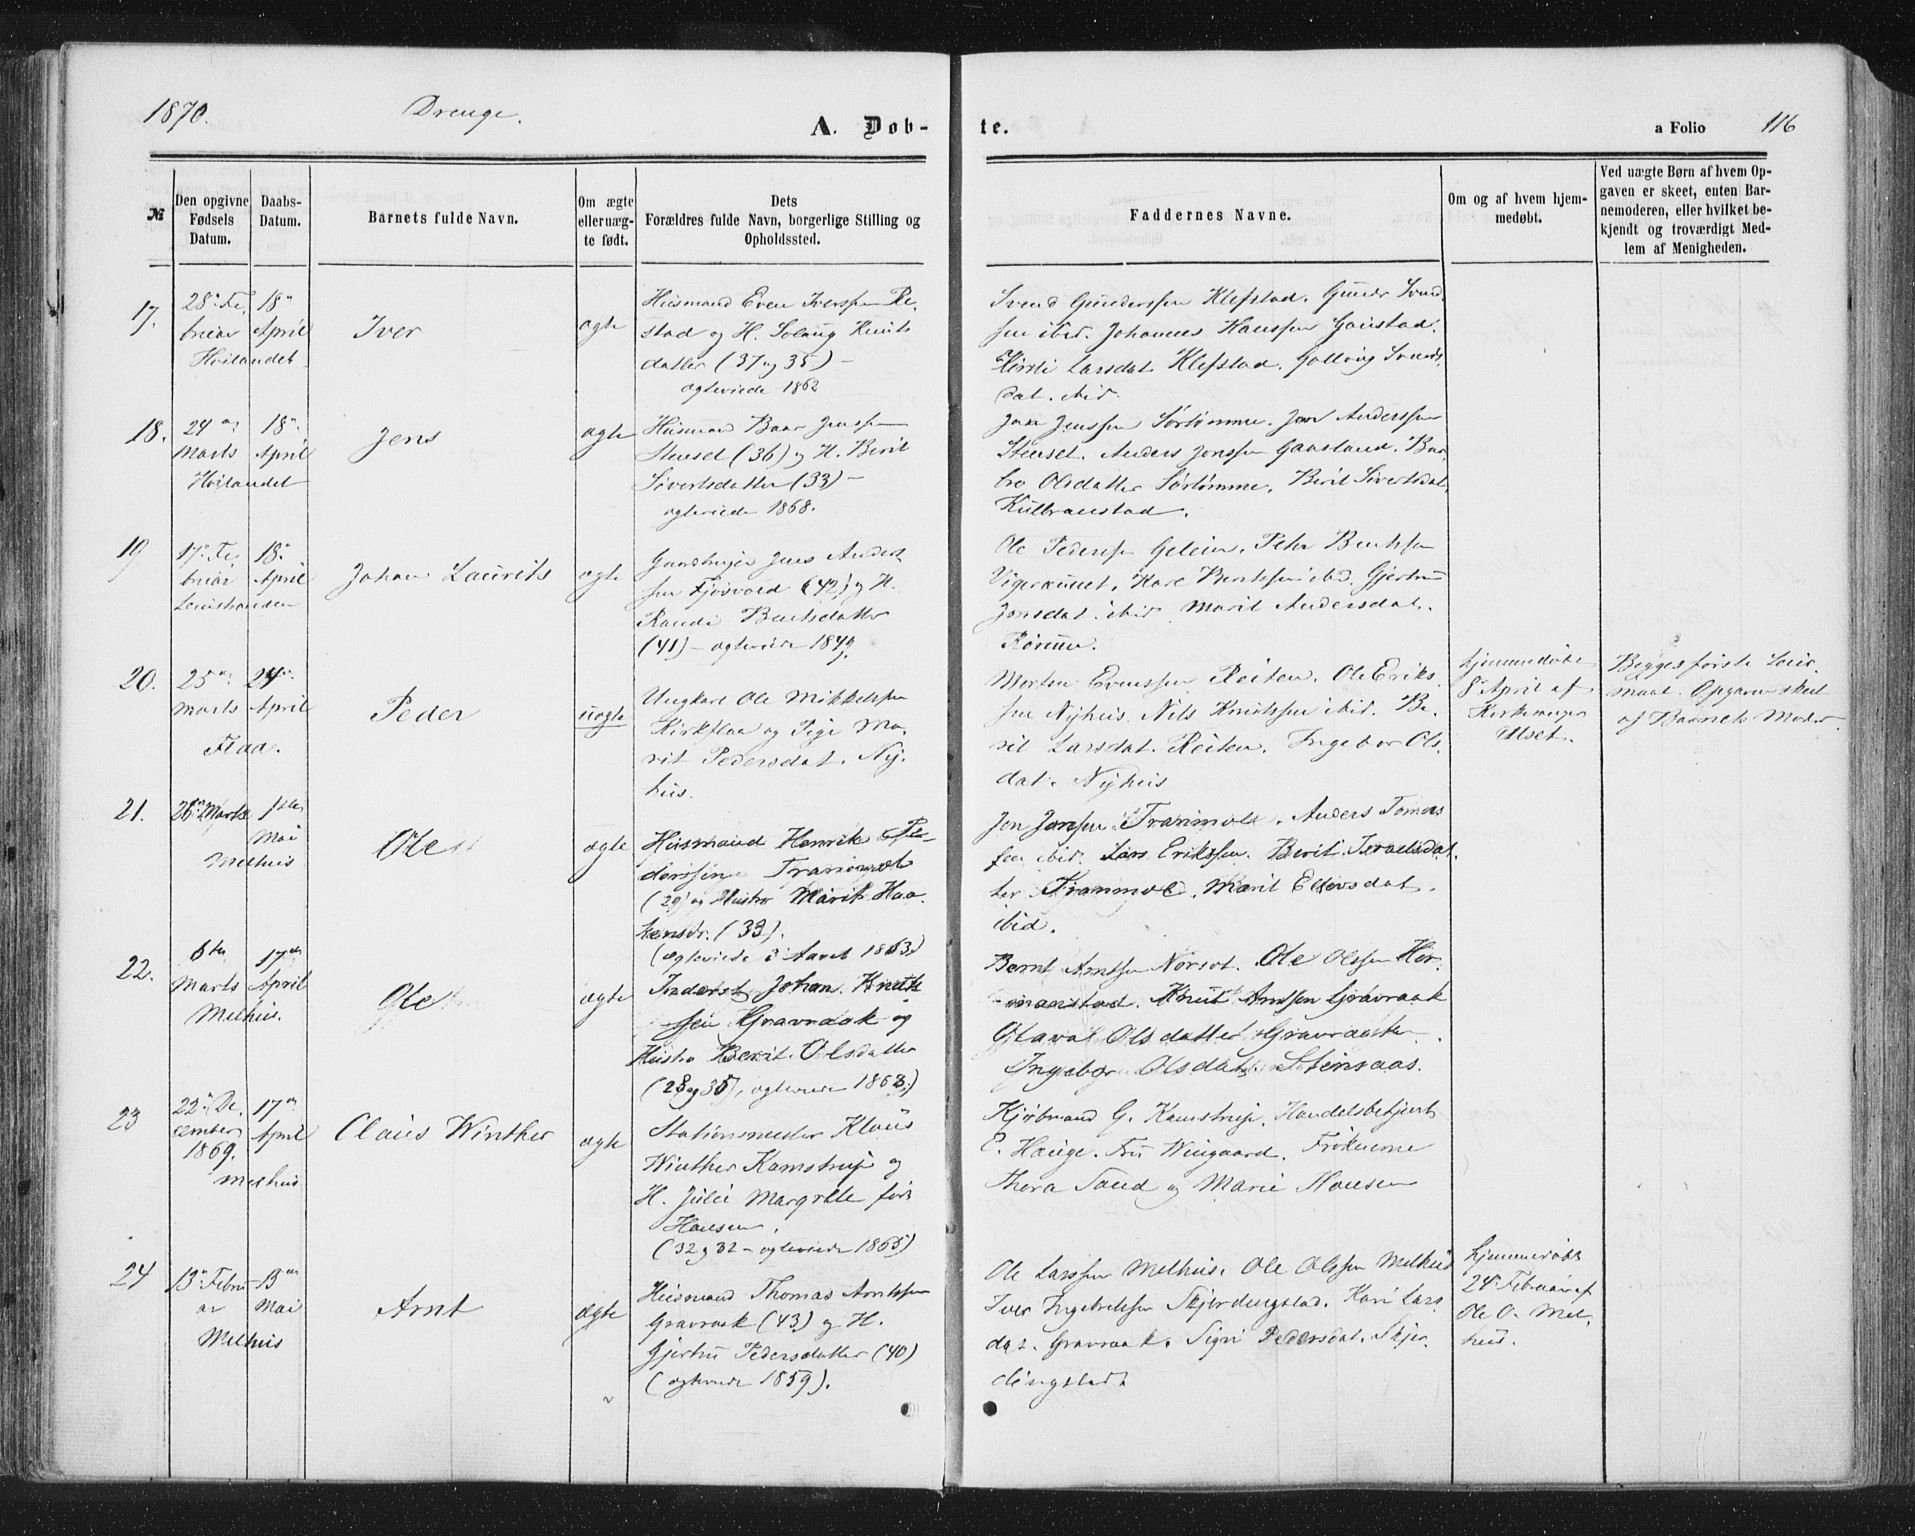 1870. Drenge. A. Døb-
te. a Folio 116
№
Den opgivne Fødsels Datum.
Daabs-Datum.
Barnets fulde Navn.
Om ægte eller uæg-te født.
Dets
Forældres fulde Navn, borgerlige Stilling og
Opholdssted.
Faddernes Navne.
Om og af hvem hjem-
medøbt.
Ved uægte Børn af hvem Op-
gaven er skeet, enten Bar-
nemoderen, eller hvilket be-
kjendt og troværdigt Med-
lem af Menigheden.
17.
28de Fe-
bruar
Høilandet
18de
April
Iver
ægte
Husmand Even Iversen Re-
stad og H. Solaug Knuts
datter (37 og 35) –
ægteviede 1862
Svend Gundersen Klefstad. Gunder Svend
sen ibid. Johannes Hanssen Gaustad.
Kirsti Larsdat. Klefstad. Gollaug Svends
dat. ibid.
18.
24de
Marts
Høilandet
18de
April
Jens
ægte
Husmand Baar Jenssen
Stenset (36) og H. Berit
Sivertsdatter (33) –
ægteviede 1868.
Jon Jenssen Sørtømme. Jon Anderssen
Stenset. Anders Jonssen Gaasland. Bar-
bro Olsdatter Sørtømme. Berit Sivertsdat.
Kulbranstad.
19
17de Fe-
bruar
Leinstranden
18de
April
Johan Laurits
ægte
Gaardbruger Jens Anders
sen Fjøsvold (42) og H.
Randi Berntsdatter
(41) – ægteviede 1849.
Ole Pedersen Geleier. Peter Berntsen
Vigeraunet. Karl Berntsen ibid. Gjertrud
Jonsdat. ibid. Marit Andersdat.
20.
25de
Marts
Flaa.
24de
April
Peder
uægte
Ungkarl Ole Mikkelsen
Kirkflaa og Pige Ma-
rit Pedersdat. Ny-
hus.
Morten Evenssen Reiten. Ole Eriks
sen Nyhus. Nils Knutssen ibid. Be-
rit Larsdat. Reiten. Ingebor Ols-
dat. Nyhus
hjemmedøbt
8de April af
Kirkesanger
Ulset.
Begges første Leier-
maal. Opgaven skeet
af Barnets Moder.
21.
26de Marts
Melhus
1ste
Mai
Ole
ægte
Husmand Henrik Pe-
derssen Tranmæl
(29) og Hustro Marit Haa-
kensdr. (33).
(ægteviede i Aaret 1863)
Jon Jonsen Tranmæl. Anders Tomas
sen ibid. Lars Erikssen. Berit Israelsdat-
ter Tranmæl. Marit Ellevsdat.
ibid.
22.
6te
Marts
Melhus.
17de
April
Ole
ægte
Inderst Johan Knut
sen Gravraak og
Hustro Berit Olsdatter
(28 og 35), ægteviede 1868.)
Bernt Arntsen Norset. Ole Olssen Her-
manstad. Knut Arntsen Gravraak
Olava Olsdatter Gravraak.
Ingebor Olsdat. Stensaas.
23
22de De-
cember
1869.
Melhus
17de
April
Claus Winther
ægte
Stationsmester Klaus
Winther Kamstrup og
H. Julie Margrete født
Hansen.
(32 og 32 – ægteviede 1865)
Kjøbmand G. Kamstrup. Handelsbetjent
E. Hauge. Fru Wingaard. Frøknerne
Thora Sand og Marie Hansen
24
13de Febru
ar
Melhus
13de
Mai
Arnt
ægte
Husmand Thomas Arntssen
Gravraak (43) og H.
Gjertru Pedersdatter (40)
(ægteviede 1859).
Ole Larssen Melhus. Ole Olssen Melhus
Iver Ingebretssen Skjerdingstad. Kari Lars
dat. Gravraak. Sigri Pedersdat. Skjer-
dingstad.
hjemmedøbt
24de Februar af
Ole O. Mel-
hus.